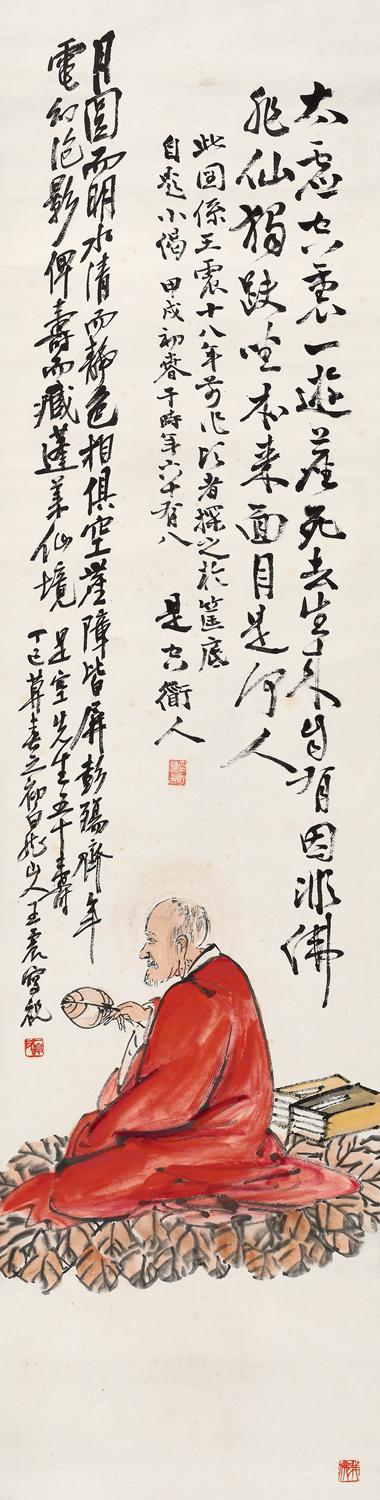 太虛空裏一遊塵死去生來自有因非佛
非仙獨趺坐本來面目是何人
此圖係王震十八年前作頃者探之於筐底
自題小偈 甲戌初春于時年六十有八 是空衜人
月圓而明水清而靜色相俱空塵障皆屏彭殤齊年
電幻泡影俾壽而臧蓬萊仙境
是空先生五十壽
丁巳莫春之初白龍山人王震寫祝